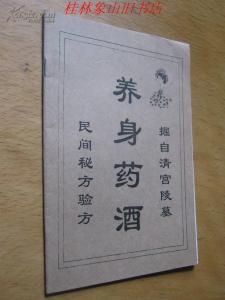 桂林象山旧书店
掘自清宫陵墓
养身药酒
民间秘方验方